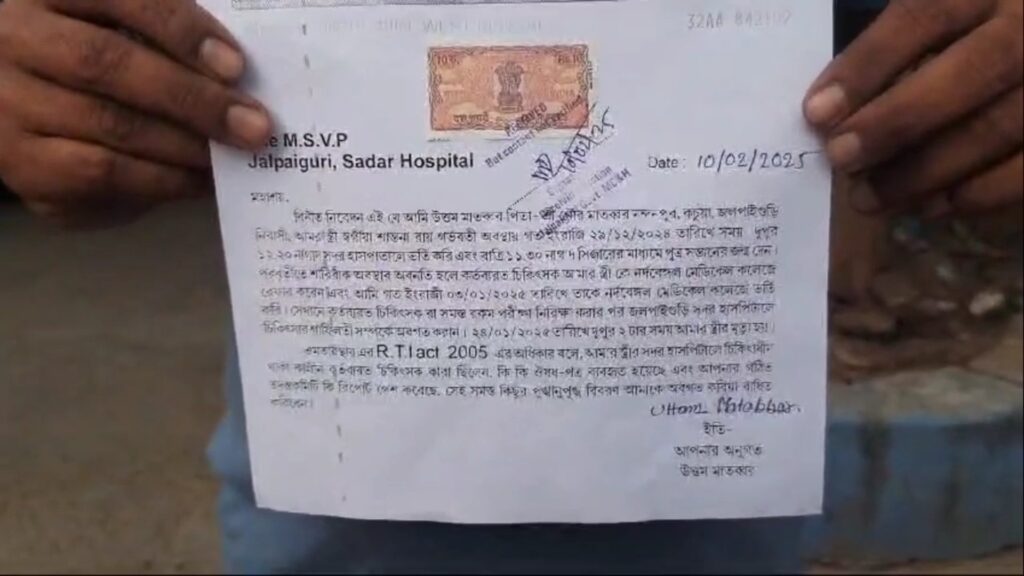 32AA 842107
The M.S.V.P
Jalpaiguri, Sadar Hospital
Date : 10/02/2025
মহাশয়,
বিনীত নিবেদন এই যে আমি উত্তম মাতব্বর পিতা- মাতব্বর কচুয়া, জলপাইগুড়ি
নিবাসী, আমার স্ত্রী স্বর্গীয়া শান্তনা রায় গর্ভবতী অবস্থায় গত ইংরাজি ২৯/১২/২০২৪ তারিখে সময় দুপুর
১২.২০ নাগাদ সদর হাসপাতালে ভর্তি করি এবং রাত্রি ১১.৩০ নাগাদ সিজারের মাধ্যমে পুত্র সন্তানের জন্ম দেন।
পরবর্তীতে শারিরীক অবস্থার অবনতি হলে কর্তব্যরত চিকিৎসক আমার স্ত্রী কে নর্দবেঙ্গল মেডিকেল কলেজে
রেফার করেন এবং আমি গত ইংরাজী ০৩/০১/২০২৫ তারিখে তাকে নর্দবেঙ্গল মেডিকেল কলেজে ভর্তি
করি। সেখানে কর্তব্যরত চিকিৎসক রা সমস্ত রকম পরীক্ষা নিরিক্ষা করার পর জলপাইগুড়ি সদর হাসপিটালে
চিকিৎসার গাফিলতী সম্পর্কে অবগত করান। ২৪/০১/২০২৫ তারিখে দুপুর ২ টার সময় আমার স্ত্রীর মৃত্যু হয়।
এমতাবস্থায় এর R.T.I act 2005 এর অধিকার বলে, আমার স্ত্রীর সদর হাসপিটালে চিকিৎসাধীন
থাকা কালীন কর্তব্যরত চিকিৎসক কারা ছিলেন, কি কি ঔষধ-পত্র ব্যবহৃত হয়েছে এবং আপনার গঠিত
তদন্তকমিটি কি রিপোর্ট পেশ করেছে, সেই সমস্ত কিছুর পুঙ্খানুপুঙ্খ বিবরণ আমাকে অবগত করিয়া বাধিত
করিবেন।
Uttam Matabbar.
ইতি-
আপনার অনুগত
উত্তম মাতব্বর